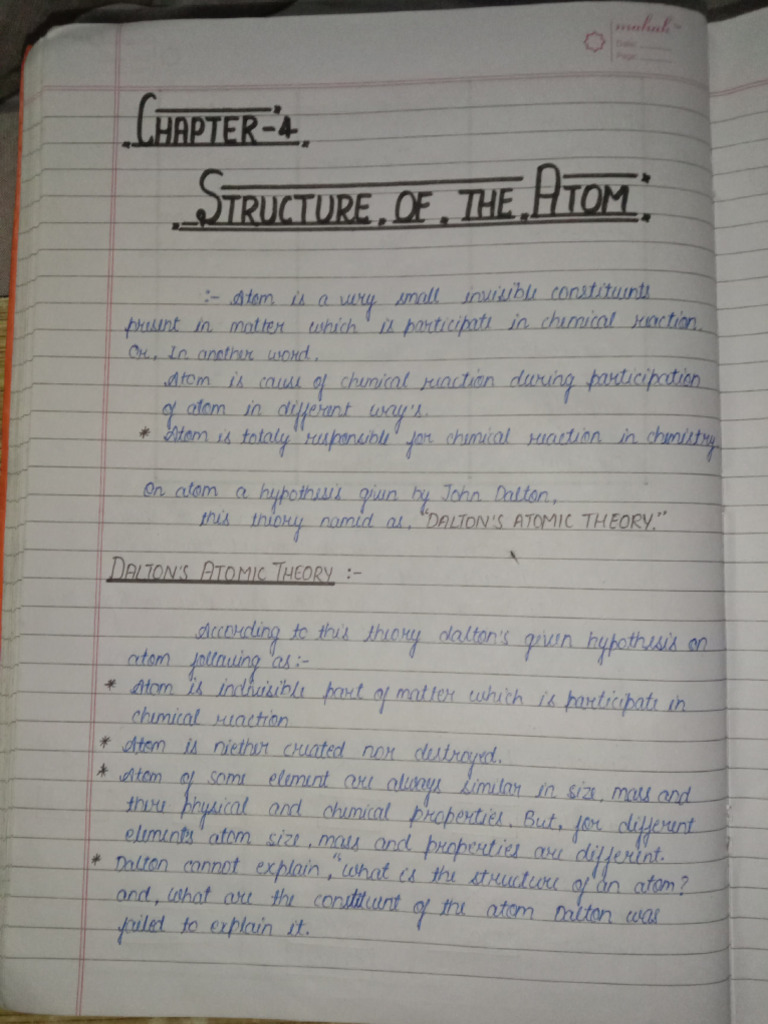 mahak
Date:
Page:
CHAPTER-4
STRUCTURE OF THE ATOM
:- Atom is a very small invisible constituents
present in matter which is participate in chemical reaction.
Or, In another word,
Atom is cause of chemical reaction during participation
of atom in different way's.
* Atom is totaly responsible for chemical reaction in chemistry
On atom a hypothesis given by John Dalton,
this theory named as, "DALTON'S ATOMIC THEORY."
DALTON'S ATOMIC THEORY :-
According to this theory dalton's given hypothesis on
atom following as:-
* Atom is indivisible part of matter which is participate in
chemical reaction
* Atom is niether created nor destroyed.
* Atom of some element are always similar in size, mass and
there physical and chemical properties. But, for different
elements atom size, mass and properties are different.
* Dalton cannot explain, "what is the structure of an atom?
and, what are the constituent of the atom Dalton was
failed to explain it.